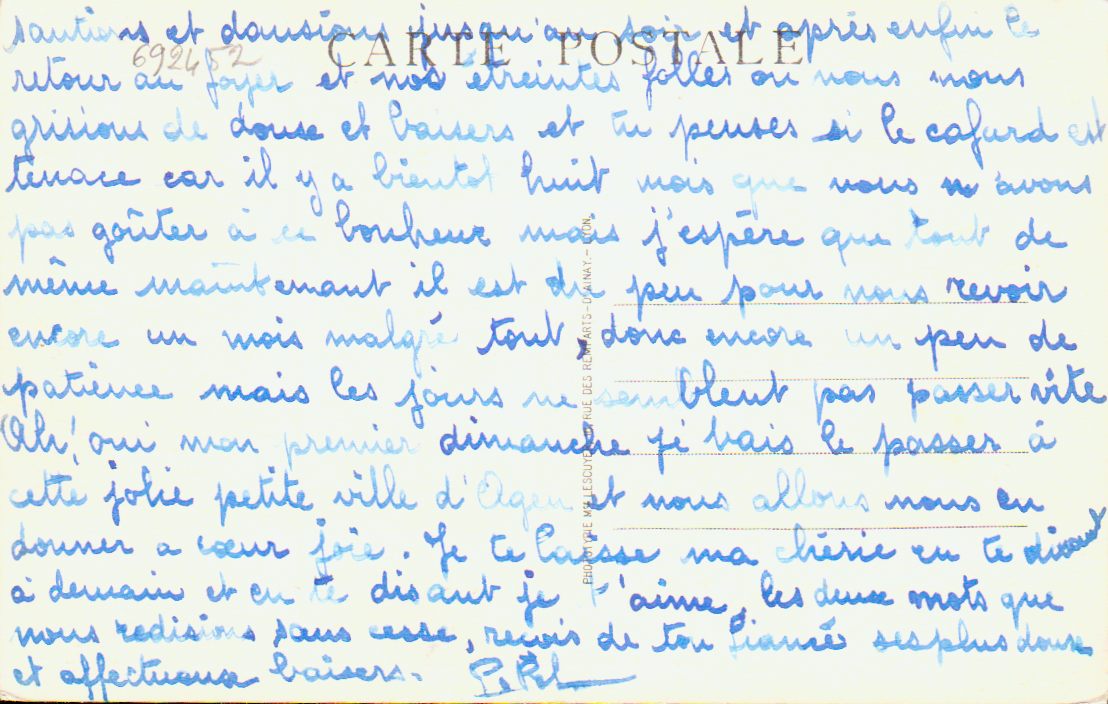 sautions et dansions jusqu'au soir et après enfin le
CARTE POSTALE
692452
retour au foyer et nos étreintes folles ou nous nous
grisions de doux et baisers et tu penses si le cafard est
tenace car il y a bientot huit mois que nous n'avons
pas goûter à ce bonheur mais j'espère que tout de
même maintenant il est du peu pour nous revoir
encore un mois malgré tout, donc encore un peu de
patience mais les jours ne semblent pas passer vite
Ah! oui mon premier dimanche je vais le passer à
cette jolie petite ville d'Agen et nous allons nous en
donner a cœur joie. Je te laisse ma chérie en te disant
à demain et en te disant je t'aime, les deux mots que
nous redisions sans cesse, reçois de ton fiancé ses plus doux
et affectueux baisers.
PHOTOTYPIE RUE DES REMPARTS-D'AINAY.-LYON